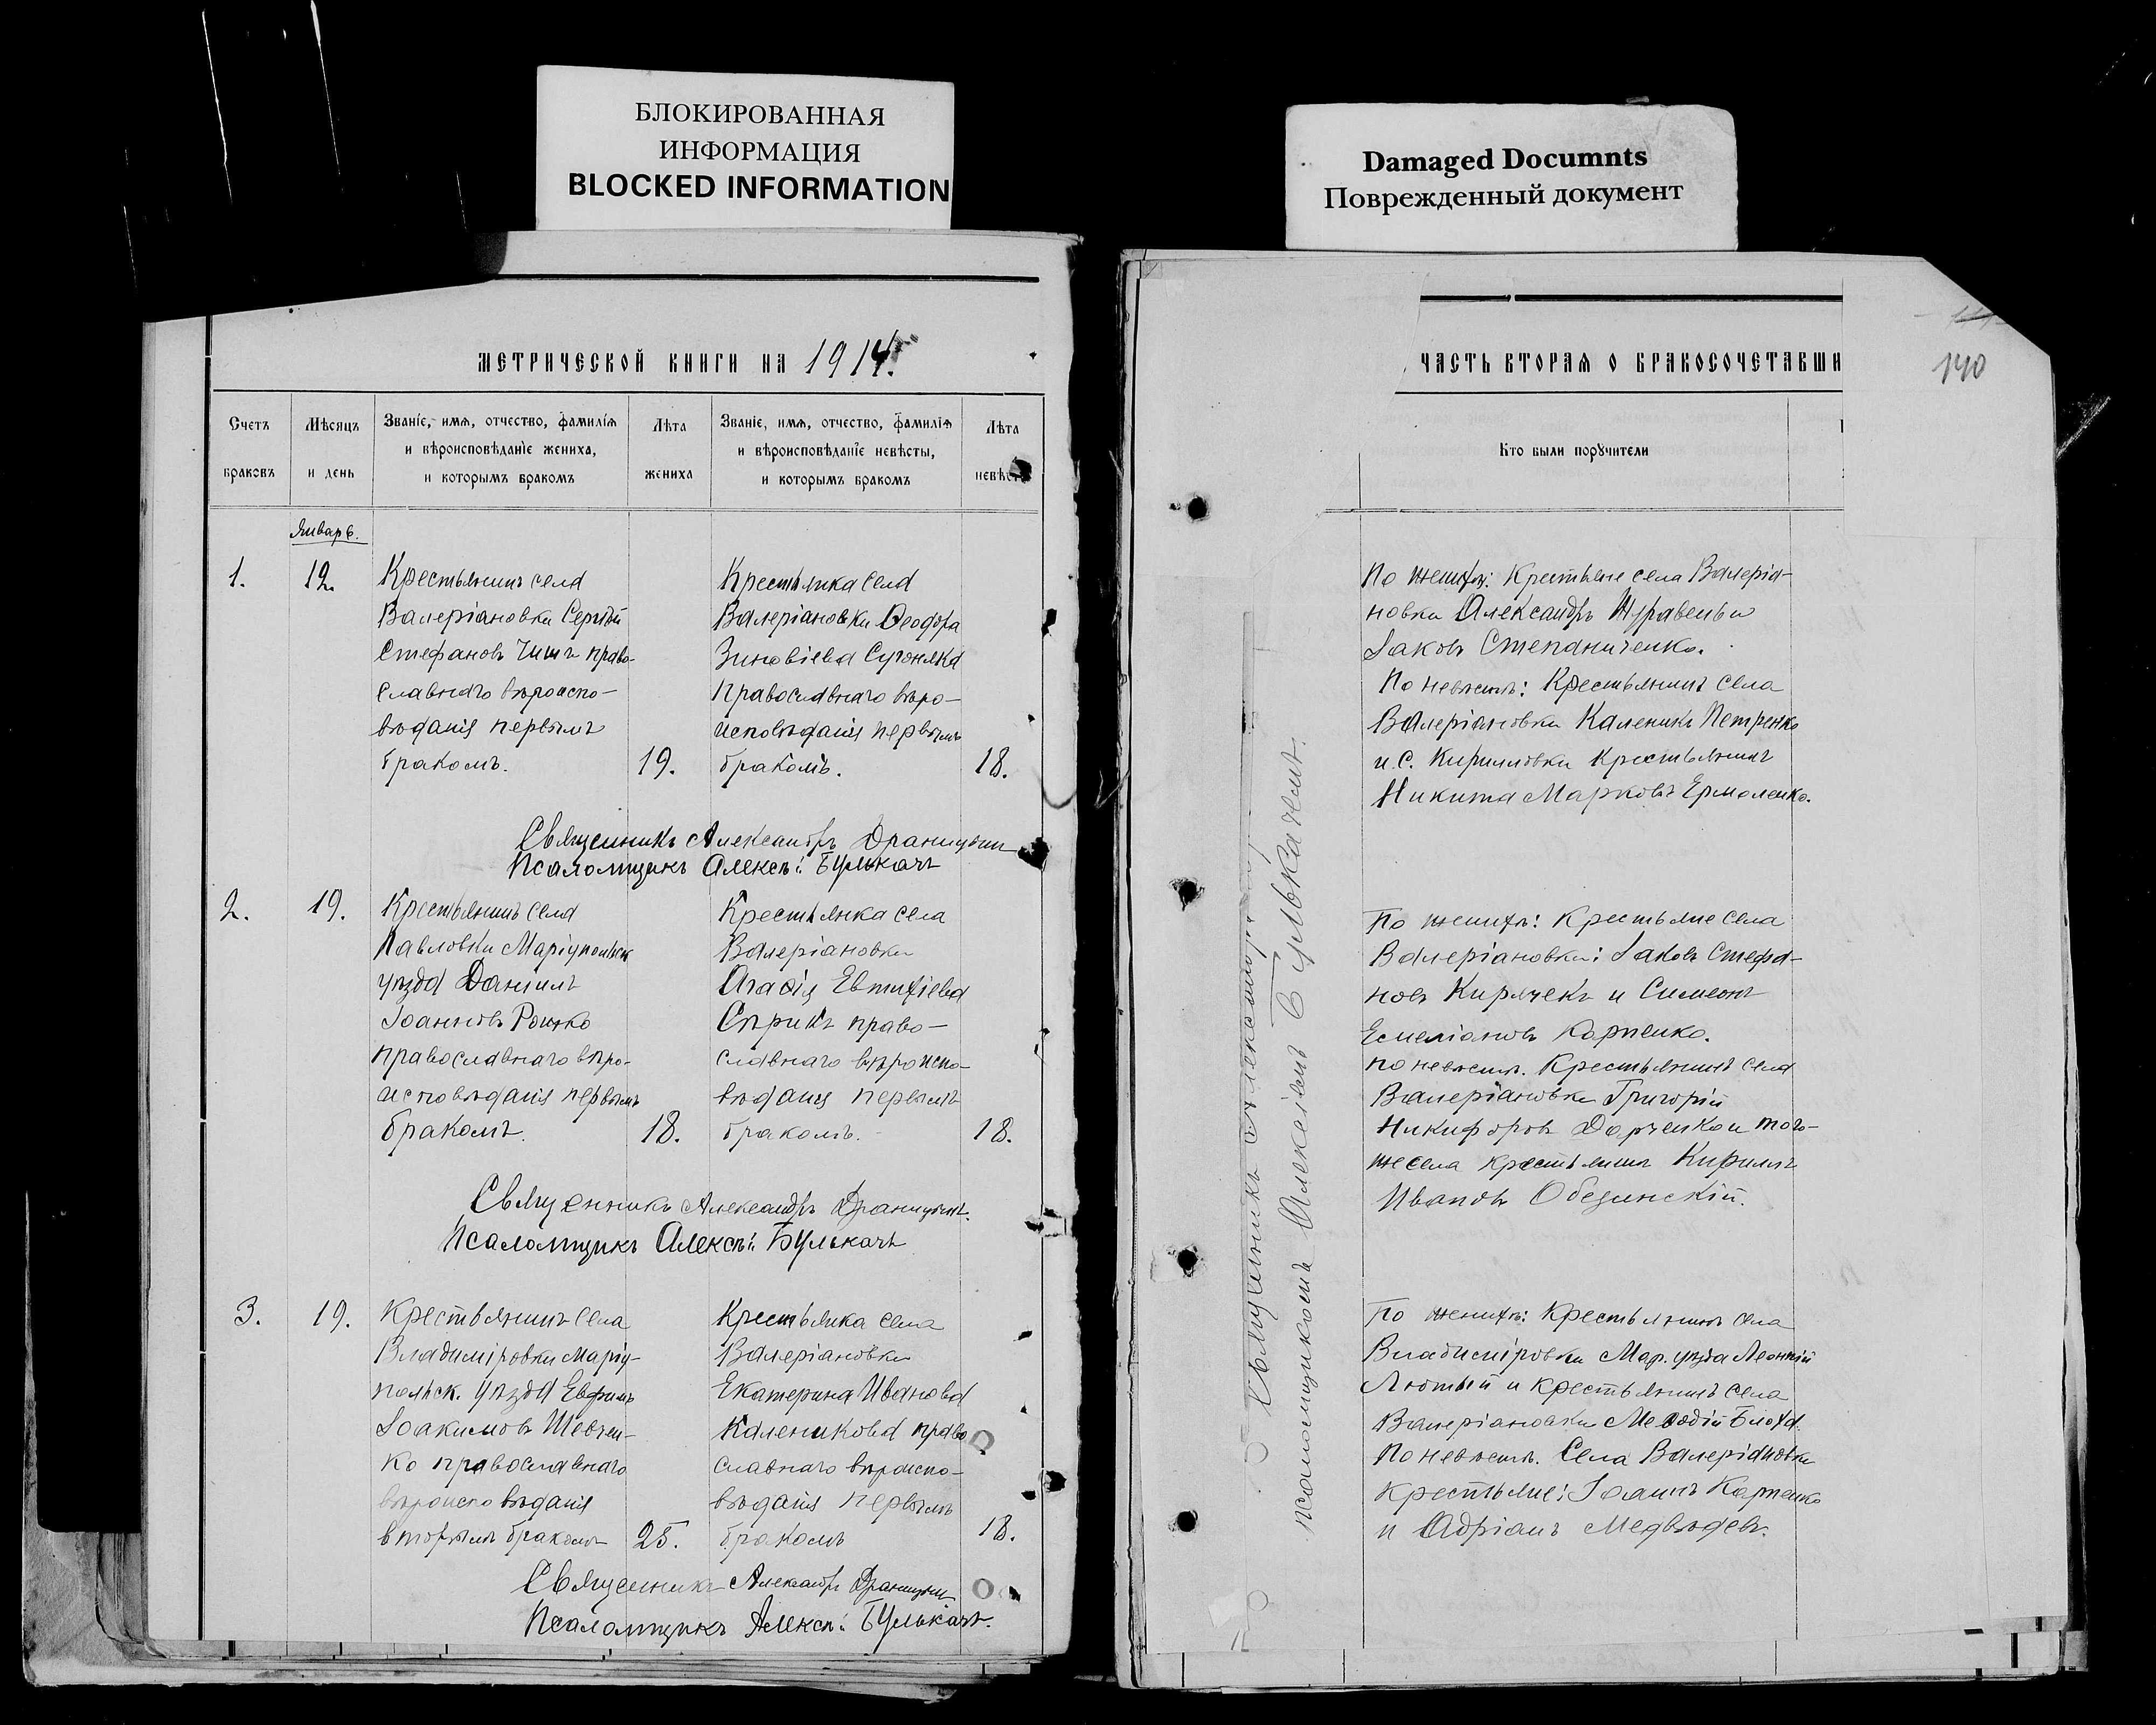 БЛОКИРОВАННАЯ
ИНФОРМАЦИЯ
BLOCKED INFORMATION
Damaged Documnts
Поврежденный документ
МЕТРИЧЕСКОЙ КНИГИ НА 1914.
Счетъ браковъ
Мѣсяцъ и день
Званіе, имя, отчество, фамилія
и вѣроисповѣданіе жениха,
и которымъ бракомъ
Лѣта жениха
Званіе, имя, отчество, фамилія
и вѣроисповѣданіе невѣсты,
и которымъ бракомъ
Лѣта
Январь.
1.
12.
Крестьянинъ села
Валеріановки Сергѣй
Стефановъ право-
славнаго вѣроиспо-
вѣданія первымъ
бракомъ.
19.
Крестьянка села
Валеріановки Ѳеодора
Зиновіева
православнаго вѣро-
исповѣданія первымъ
бракомъ.
18.
Священникъ Александръ
Псаломщикъ Алексѣй Булькачъ
2.
19.
Крестьянинъ села
Павловки Маріупольск
уѣзда Даніилъ
Іоанновъ
православнаго вѣро-
исповѣданія первымъ
бракомъ.
18.
Крестьянка села
Валеріановки
Агаѳія Евтихіева
Сѣрикъ право-
славнаго вѣроиспо-
вѣданія первымъ
бракомъ.
18.
Священникъ Александръ
Псаломщикъ Алексѣй Булькачъ
3.
19.
Крестьянинъ села
Владиміровки Маріу-
польск. уѣзда Евфимъ
Іоакимовъ Шевчен-
ко православнаго
вѣроисповѣданія
вторымъ бракомъ
25.
Крестьянка села
Валеріановки
Екатерина Иванова
Каленикова право
славнаго вѣроиспо-
вѣданія первымъ
бракомъ
18.
Священникъ Александръ
Псаломщикъ Алексѣй Булькачъ.
140
ЧАСТЬ ВТОРАЯ О БРАКОСОЧЕТАВШИ
Кто были поручители
По женихѣ: Крестьяне села Валеріа-
новки Александръ Журавель и
Іаковъ Степаниченко.
По невѣстѣ: Крестьянинъ села
Валеріановки Каленикъ Петренко
и с. Кирилловки Крестьянинъ
Никита Марковъ Ермоленко.
По женихѣ: Крестьяне села
Валеріановки: Іаковъ Стефа-
новъ Кирячекъ и Симеонъ
Емеліановъ Карпенко.
по невѣстѣ. Крестьянинъ села
Валеріановки Григорій
Никифоровъ и того-
же села крестьянинъ Кириллъ
Ивановъ Обединскій.
По женихѣ: Крестьянинъ села
Владиміровки Мар. уѣзда Леонтій
Лютый и крестьянинъ села
Валеріановки Меѳодій Блоха.
По невѣстѣ. Села Валеріановки
крестьяне: Іоаннъ Карпенко
и Адріанъ Медвѣдевъ.
псаломщикомъ Алексѣемъ Булькачемъ.